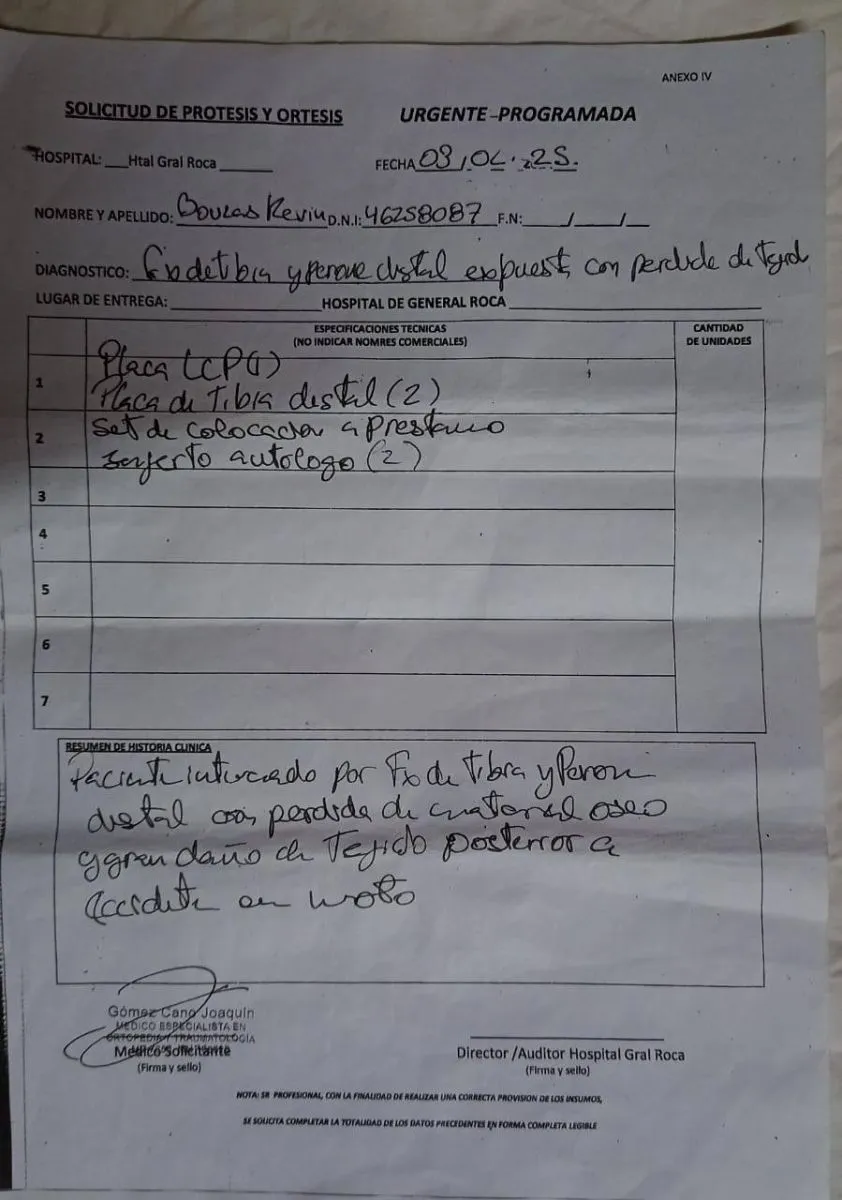 ANEXO IV
SOLICITUD DE PROTESIS Y ORTESIS URGENTE-PROGRAMADA
HOSPITAL: Htal Gral Roca FECHA 03/04.25.
NOMBRE Y APELLIDO: Bouzas Kevin D.N.I: 46258087 F.N: / /
DIAGNOSTICO: Fx de tibia y perone distal expuesta con perdida de tejido
LUGAR DE ENTREGA: HOSPITAL DE GENERAL ROCA
ESPECIFICACIONES TECNICAS CANTIDAD
(NO INDICAR NOMRES COMERCIALES) DE UNIDADES
1 Placa LCP (1)
Placa de Tibia distal (2)
2 Set de colocacion a prestamo
Injerto autologo (2)
3
4
5
6
7
RESUMEN DE HISTORIA CLINICA
Paciente internado por Fx de Tibia y Perone
distal con perdida de material oseo
y gran daño de Tejido posterior a
accidente en moto
Gómez Cano Joaquín
MEDICO ESPECIALISTA EN
ORTOPEDIA Y TRAUMATOLOGÍA
Médico Solicitante Director /Auditor Hospital Gral Roca
(Firma y sello) (Firma y sello)
NOTA: SR PROFESIONAL, CON LA FINALIDAD DE REALIZAR UNA CORRECTA PROVISION DE LOS INSUMOS,
SE SOLICITA COMPLETAR LA TOTALIDAD DE LOS DATOS PRECEDENTES EN FORMA COMPLETA LEGIBLE